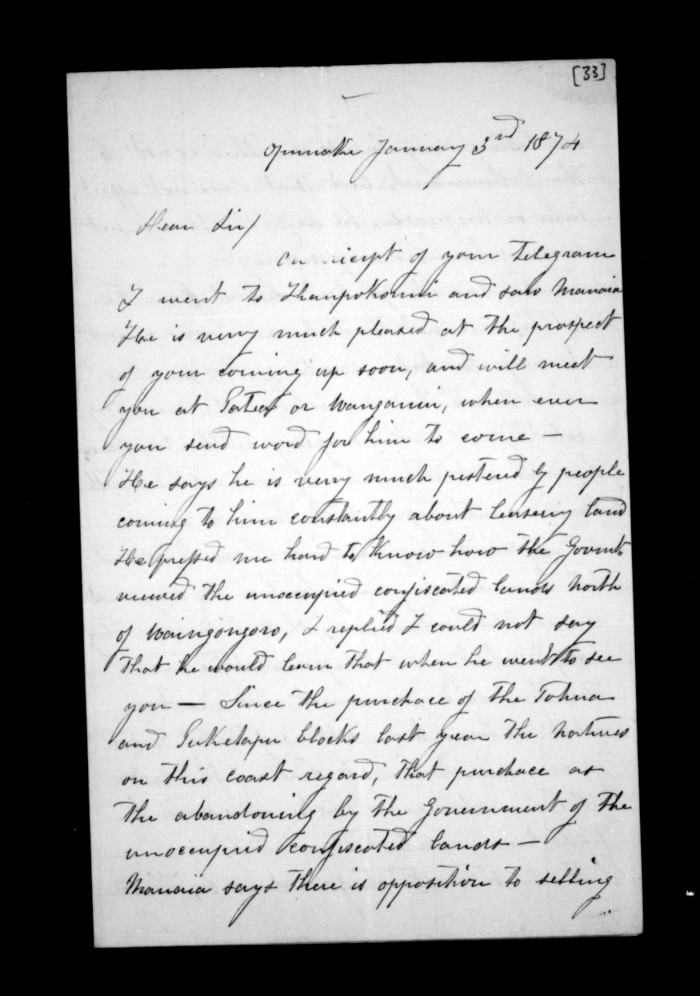 [33]
Opunake January 3rd 1874
Dear Sir/
On reicept of your Telegram
I went to and saw Manaia
He is very much pleased at the prospect
of your coming up soon, and will meet
you at Patea or Wanganui, when ever
you send word for him to come —
He says he is very much pestered by people
coming to him constantly about leasing land
He pressed me hard to know how the Govmt
viewed the unoccupied confiscated lands North
of Waingongoro, I replied I could not say
that he would learn that when he went to see
you — Since the purchace of the
and Puketapu blocks last year the natives
on this coast regard, that purchace as
the abandoning by the Government of the
unoccupied confiscated lands —
Manaia says there is opposition to selling